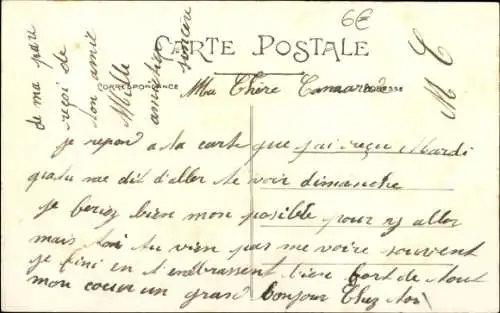 6€
CARTE POSTALE
CORRESPONDANCE
ADRESSE
Ma Chère Camarade
je repond a ta carte que j'ai reçu Mardi
qu tu me dit d'aller te voir dimanche
je ferez bien mon posible pour y aller
mais toi tu vien par me voire souvent
je fini en t'embrassent bien fort de tout
mon coeur un grand bonjour Chez toi
de ma part
reçoi de
ton amie
Mille
amitiés
sincère
M C